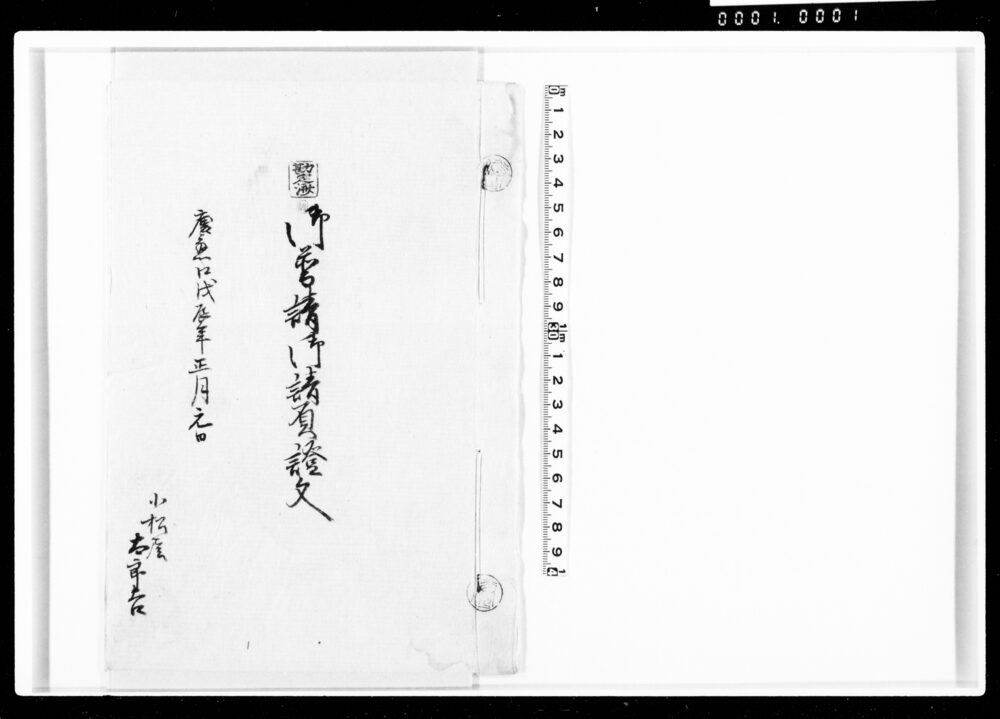 0001. 0001
勘定濟
御普請御請負證文
慶應四戊辰年正月元日
小松屋
太郎吉
0 1 2 3 4 5 6 7 8 9 1m 1 2 3 4 5 6 7 8 9